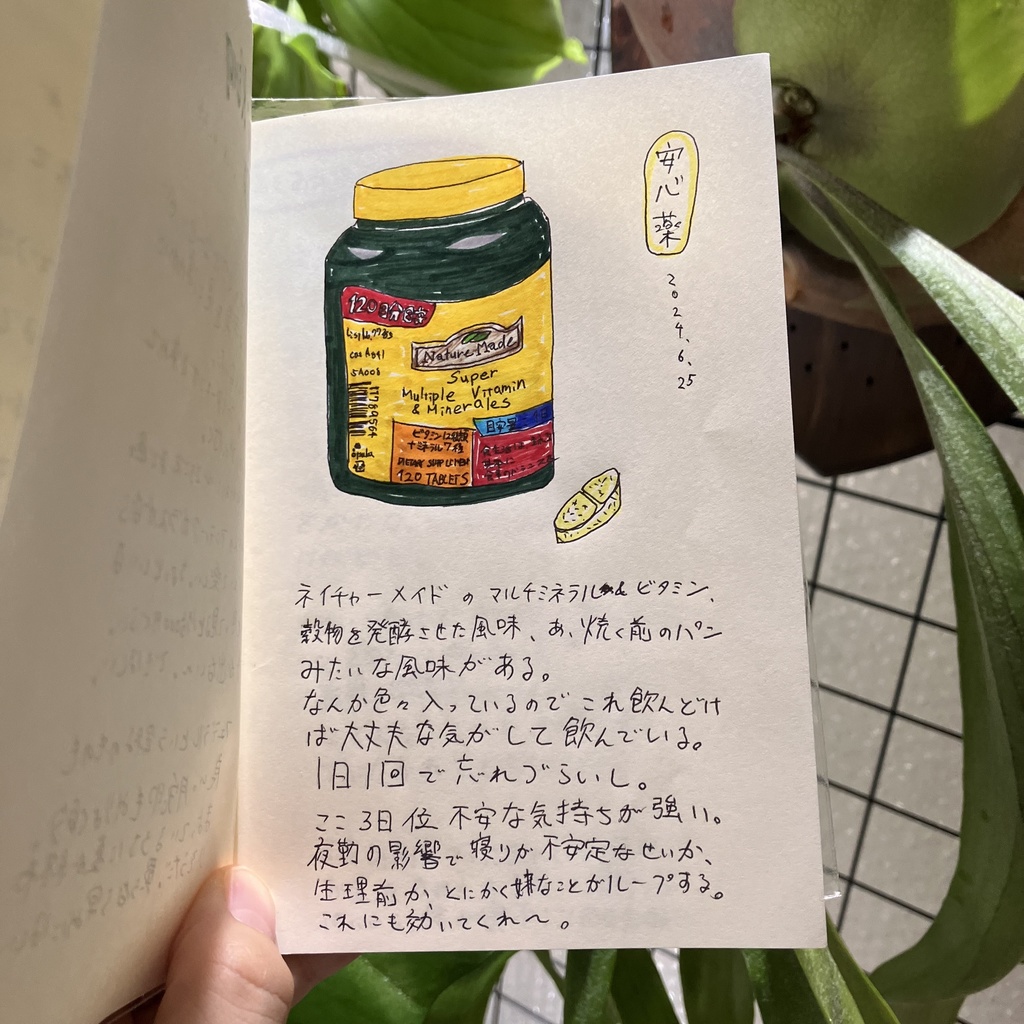 安心薬
2024.6.25
120日分
Nature Made
Super
Multiple Vitamin
& Minerales
ビタミン12種類
+ミネラル7種
120 TABLETS
目安量
ネイチャーメイドのマルチミネラル&ビタミン、
穀物を発酵させた風味、あ、焼く前のパン
みたいな風味がある。
なんか色々入っているのでこれ飲んどけ
ば大丈夫な気がして飲んでいる。
1日1回で忘れづらいし。
ここ3日位不安な気持ちが強い。
夜勤の影響で寝りが不安定なせいか、
生理前か、とにかく嫌なことがループする。
これにも効いてくれ〜。